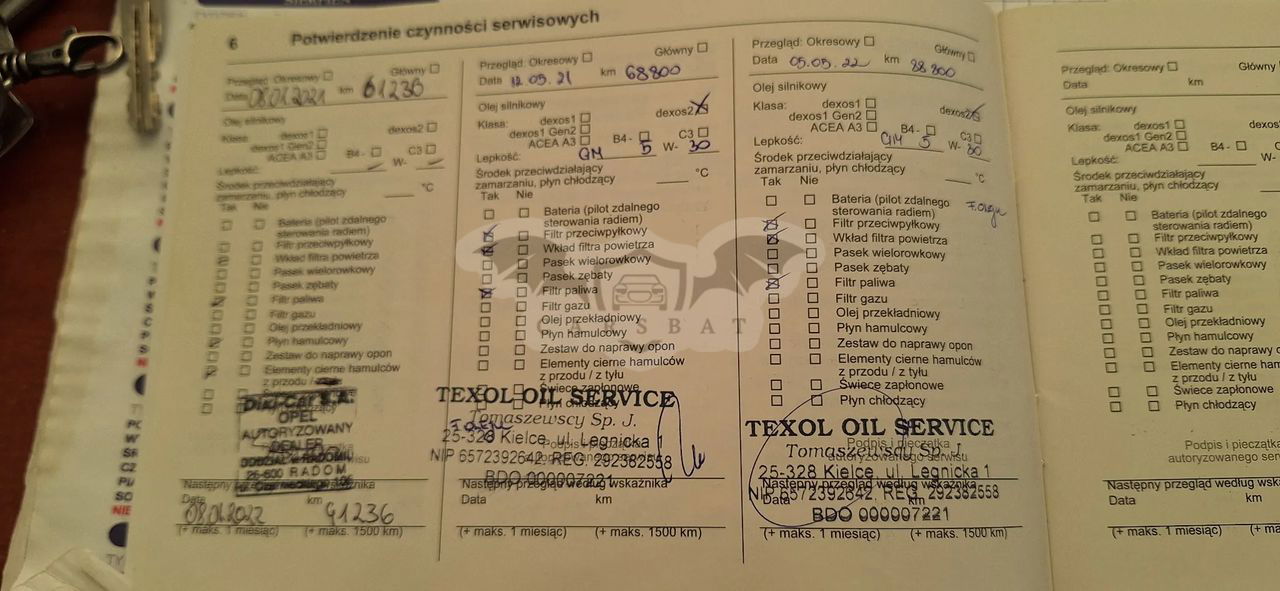 6 Potwierdzenie czynności serwisowych
Przegląd: Okresowy Główny
Data 08.01.2021 km 61236
Olej silnikowy
Klasa: dexos1 dexos2
dexos1 Gen2
ACEA A3 B4- C3
Lepkość: W-
Środek przeciwdziałający
zamarzaniu, płyn chłodzący °C
Tak Nie
Bateria (pilot zdalnego
sterowania radiem)
Filtr przeciwpyłkowy
Wkład filtra powietrza
Pasek wielorowkowy
Pasek zębaty
Filtr paliwa
Filtr gazu
Olej przekładniowy
Płyn hamulcowy
Zestaw do naprawy opon
Elementy cierne hamulców
z przodu /
Dixi-Car S.A.
OPEL
AUTORYZOWANY
DEALER
26-600 RADOM
Następny przegląd według wskaźnika
Data km
08.01.2022 91236
(+ maks. 1 miesiąc) (+ maks. 1500 km)
Przegląd: Okresowy Główny
Data 12.05.21 km 68800
Olej silnikowy
Klasa: dexos1 dexos2
dexos1 Gen2
ACEA A3 B4- C3
Lepkość: GM 5 W- 30
Środek przeciwdziałający
zamarzaniu, płyn chłodzący °C
Tak Nie
Bateria (pilot zdalnego
sterowania radiem)
Filtr przeciwpyłkowy
Wkład filtra powietrza
Pasek wielorowkowy
Pasek zębaty
Filtr paliwa
Filtr gazu
Olej przekładniowy
Płyn hamulcowy
Zestaw do naprawy opon
Elementy cierne hamulców
z przodu / z tyłu
Świece zapłonowe
Płyn chłodzący
TEXOL OIL SERVICE
Tomaszewscy Sp. J.
25-328 Kielce, ul. Legnicka 1
NIP 6572392642, REG. 292382558
BDO 000007221
Następny przegląd według wskaźnika
Data km
(+ maks. 1 miesiąc) (+ maks. 1500 km)
Przegląd: Okresowy Główny
Data 05.05.22 km 88800
Olej silnikowy
Klasa: dexos1 dexos2
dexos1 Gen2
ACEA A3 B4- C3
Lepkość: GM 5 W- 30
Środek przeciwdziałający
zamarzaniu, płyn chłodzący °C
Tak Nie
Bateria (pilot zdalnego
sterowania radiem)
Filtr przeciwpyłkowy
Wkład filtra powietrza
Pasek wielorowkowy
Pasek zębaty
Filtr paliwa
Filtr gazu
Olej przekładniowy
Płyn hamulcowy
Zestaw do naprawy opon
Elementy cierne hamulców
z przodu / z tyłu
Świece zapłonowe
Płyn chłodzący
TEXOL OIL SERVICE
Podpis i pieczątka
Tomaszewscy Sp. J.
autoryzowanego serwisu
25-328 Kielce, ul. Legnicka 1
Następny przegląd według wskaźnika
NIP 6572392642, REG. 292382558
Data km
BDO 000007221
(+ maks. 1 miesiąc) (+ maks. 1500 km)
Przegląd: Okresowy Główny
Data km
Olej silnikowy
Klasa: dexos1
dexos1 Gen2
ACEA A3 B4-
Lepkość: W-
Środek przeciwdziałający
zamarzaniu, płyn chłodzący
Tak Nie
Bateria (pilot zdalnego
sterowania radiem)
Filtr przeciwpyłkowy
Wkład filtra powietrza
Pasek wielorowkowy
Pasek zębaty
Filtr paliwa
Filtr gazu
Olej przekładniowy
Płyn hamulcowy
Zestaw do naprawy opon
Elementy cierne
z przodu / z tyłu
Świece zapłonowe
Płyn chłodzący
Podpis i pieczątka
autoryzowanego
Następny przegląd według
Data km
(+ maks. 1 miesiąc) (+ maks. 1500
CARSBAT